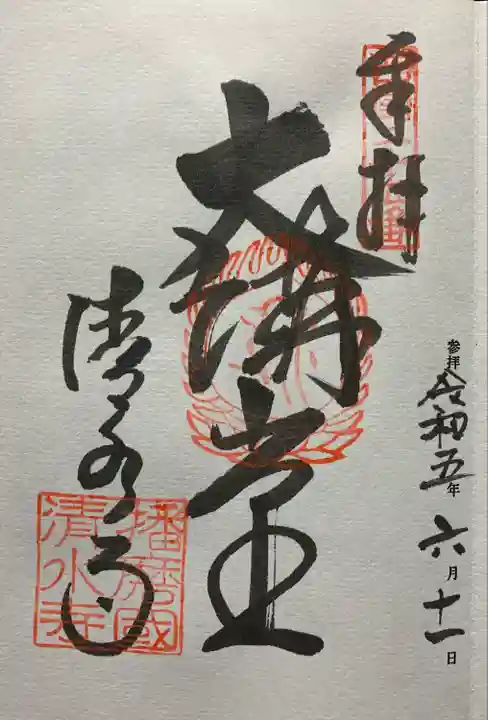 奉拝
大講堂
清水寺
播磨國
清水寺
参拝 令和五年 六月十一日